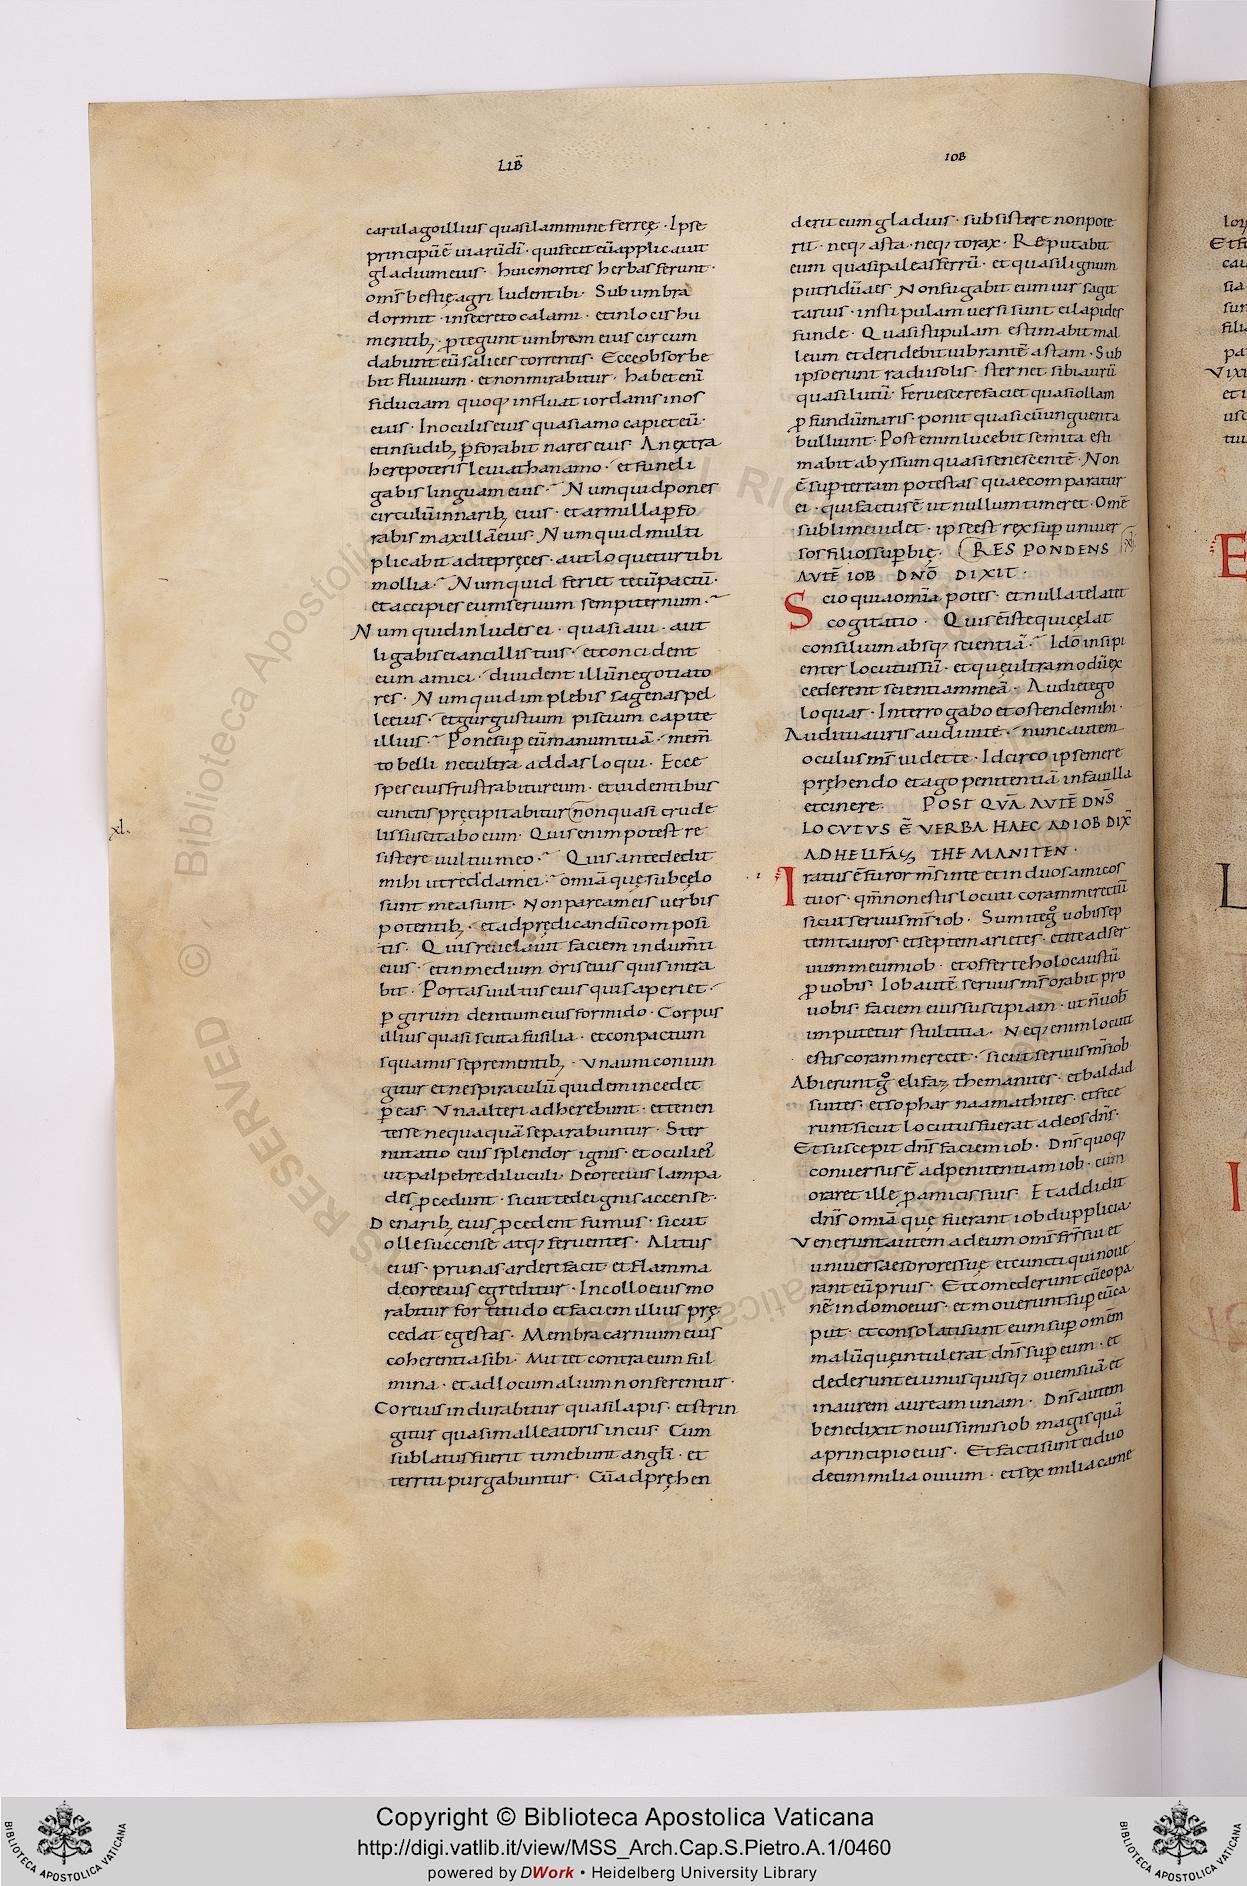 LIB̃
IOB
cartilago illius quasi lammine ferreę · Ipse
principiũ ẽ uiarũ dĩ · qui fecit eũ applicauit
gladium eius · huic montes herbas ferunt ·
om̃s bestię agri ludent ibi · Sub umbra
dormit · in secreto calami · et in locis hu
mentib; · ptegunt umbram eius circum
dabunt eũ salices torrentis · Ecce obsorbe
bit fluuium · et non mirabitur · habet enĩ
fiduciam quoq; influat iordanis in os
eius · In oculis eius quasi amo capiet eũ ·
et in sudib; pforabit nares eius · An extra
here poteris leuiathan amo · et fune li
gabis linguam eius · Numquid pones
circulũ in narib; eius · et armilla pfo
rabis maxillã eius · Numquid multi
plicabit ad te pręces · aut loquetur tibi
mollia · Numquid feriet tecũ pactũ ·
et accipies eum seruum sempiternum ·
Numquid inludes ei · quasi aui · aut
ligabis ei ancillis tuis · et concident
eum amici · diuident illũ negotiato
res · Numquid implebis sagenas pel
le eius · et gurgustium piscium capite
illius · Pone sup eũ manum tuã · mem̃
to belli nec ultra addas loqui · Ecce
spes eius frustrabitur eum · et uidentibus
cunctis pręcipitabitur non quasi crude
xl.
lis suscitabo eum · Quis enim potest re
sistere uultui meo · Quis ante dedit
mihi ut reddam ei · omiã quę sub cęlo
sunt mea sunt · Non parcam eis uerbis
potentib; · et ad prędicandũ composi
tis · Quis reuelauit faciem indum̃ti
eius · et in medium oris eius quis intra
bit · Portas uultus eius quis aperiet ·
p girum dentium eius formido · Corpus
illius quasi scuta fusilia · et conpactum
squamis se prementib; · Vna uni coniun
gitur et ne spiraculũ quidem incedet
p eas · Vna alteri adherebunt · et tenen
tes se nequaquã separabuntur · Ster
nutatio eius splendor ignis · et oculi ei
ut palpebre diluculi · De ore eius lampa
des pcedunt · sicut tede ignis accense ·
De narib; eius pcedent fumus · sicut
olle succense atq; feruentes · Alitus
eius · prunas ardere facit et flamma
de ore eius egreditur · In collo eius mo
rabitur fortitudo et faciem illius prę
cedat egestas · Membra carnium eius
coherentia sibi · Mittet contra eum ful
mina · et ad locum alium non ferentur ·
Cor eius indurabitur quasi lapis · et strin
gitur quasi malleatoris incus · Cum
sublatus fuerit timebunt angli · et
territi purgabuntur · Cũ adpręhen
derit eum gladius · subsistere non pote
rit · neq; asta · neq; torax · Reputabit
eum quasi paleas ferrũ · et quasi lignum
putridũ aes · Non fugabit eum uir sagit
tarius · in stipulam uersi sunt ei lapides
funde · Quasi stipulam estimabit mal
leum et deridebit uibrantẽ astam · Sub
ipso erunt radii solis · sternet sibi aurũ
quasi lutũ · Feruescere faciet quasi ollam
pfundũ maris · ponit quasi cũ unguenta
bulliunt · Post eum lucebit semita esti
mabit abyssum quasi senescentẽ · Non
ẽ sup terram potestas quae comparatur
ei · qui factus ẽ ut nullum timeret · Omẽ
sublime uidet · ipse est rex sup uniuer
sos filios supbię · RESPONDENS
xl
AVTẼ IOB DNÕ DIXIT ·
Scio quia omĩa potes · et nulla te latet
cogitatio · Quis ẽ iste qui cęlat
consilium absq; scientiã · Idõ insipi
enter locutus sũ · et quę ultra modũ ex
cederent scientiam meã · Audi et ego
loquar · Interrogabo et ostende mihi ·
Auditu auris audiui te · nunc autem
oculus m̃s uidet te · Idcirco ipse me re
pręhendo et ago penitentiã in fauilla
et cinere · POST QVÃ AVTẼ DÑS
LOCVTVS Ẽ VERBA HAEC AD IOB DIX̃
AD HELIFAZ THEMANITEN ·
Iratus ẽ furor m̃s in te et in duos amicos
tuos · qm̃ non estis locuti coram me rectũ
sicut seruus m̃s iob · Sumite g̊ uobis sep
tem tauros · et septem arietes · et ite ad ser
uum meum iob · et offerte holocaustũ
p uobis · Iob autẽ seruus m̃s orabit pro
uobis · faciem eius suscipiam · ut ñ uob̃
imputetur stultitia · Neq; enim locuti
estis coram me recte · sicut seruus m̃s iob
Abierunt g̊ elifaz themanites · et baldad
suites · et sophar naamathites · et fece
runt sicut locutus fuerat ad eos dñs ·
Et suscepit dñs faciem iob · Dñs quoq;
conuersus ẽ ad penitentiam iob · cum
oraret ille p amicis suis · Et addidit
dñs omiã quę fuerant iob dupplicia ·
Venerunt autem ad eum om̃s fr̃s sui et
uniuersae sorores suę et cuncti qui noue
rant eũ prius · Et comederunt cũ eo pa
nẽ in domo eius · et mouerunt sup eũ ca
put · et consolati sunt eum sup omẽm
malũ quę intulerat dñs sup eum · et
dederunt ei unusquisq; ouem suã et
inaurem auream unam · Dñs autem
benedixit nouissimis iob magis quã
a principio eius · Et facti sunt ei duo
decim milia ouium · et sex milia came
Copyright © Biblioteca Apostolica Vaticana
http://digi.vatlib.it/view/MSS_Arch.Cap.S.Pietro.A.1/0460
powered by DWork • Heidelberg University Library
BIBLIOTECA APOSTOLICA VATICANA
BIBLIOTECA APOSTOLICA VATICANA